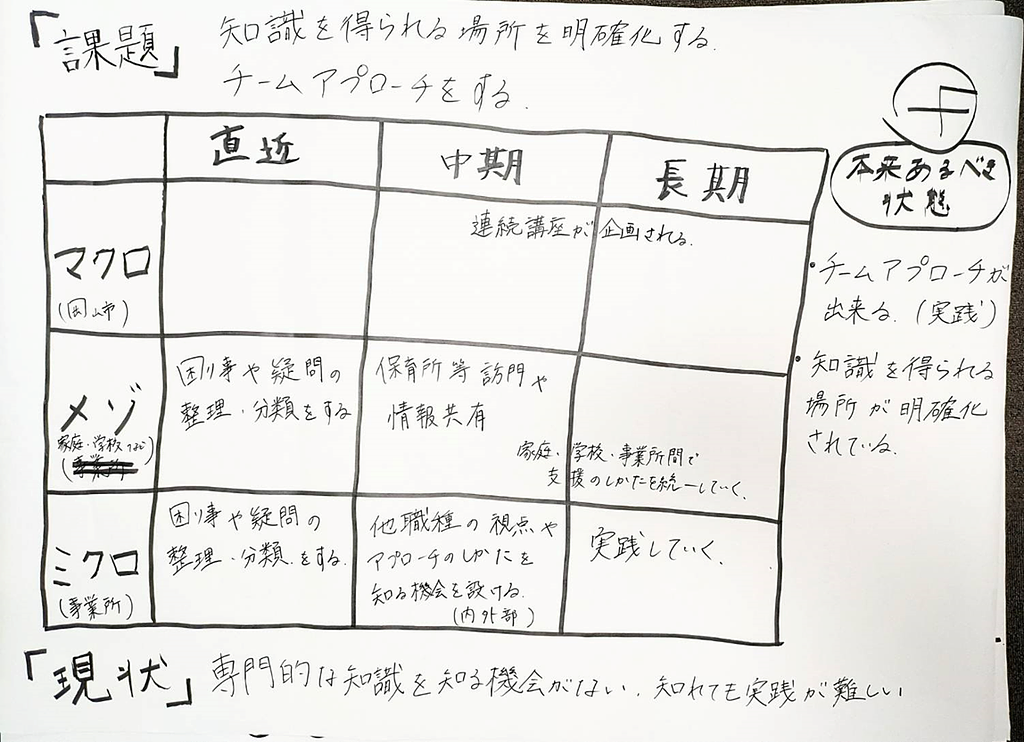 「課題」 知識を得られる場所を明確化する.
チームアプローチをする.
直近 中期 長期
マクロ
(岡山市)
連続講座が企画される.
メゾ
家庭・学校など
(事業所)
困り事や疑問の
整理・分類をする
保育所等訪問や
情報共有
家庭・学校・事業所間で
支援のしかたを統一していく.
ミクロ
(事業所)
困り事や疑問の
整理・分類をする.
他職種の視点や
アプローチのしかたを
知る機会を設ける.
(内外部)
実践していく.
F
本来あるべき
状態
・チームアプローチが
出来る.(実践)
・知識を得られる
場所が明確化
されている.
「現状」 専門的な知識を知る機会がない.知れても実践が難しい